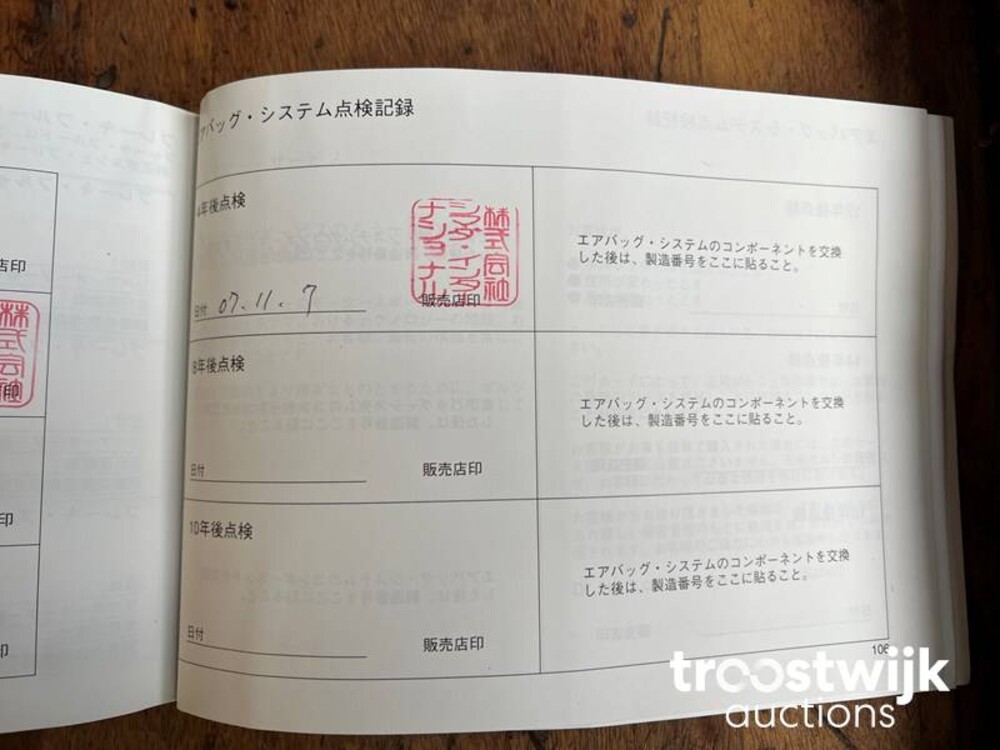 店印
株式会社
印
エアバッグ・システム点検記録
4年後点検
株式会社
シマダ・インター
ナショナル
日付 07.11.7
販売店印
エアバッグ・システムのコンポーネントを交換
した後は、製造番号をここに貼ること。
8年後点検
日付
販売店印
エアバッグ・システムのコンポーネントを交換
した後は、製造番号をここに貼ること。
10年後点検
日付
販売店印
エアバッグ・システムのコンポーネントを交換
した後は、製造番号をここに貼ること。
106
troostwijk
auctions